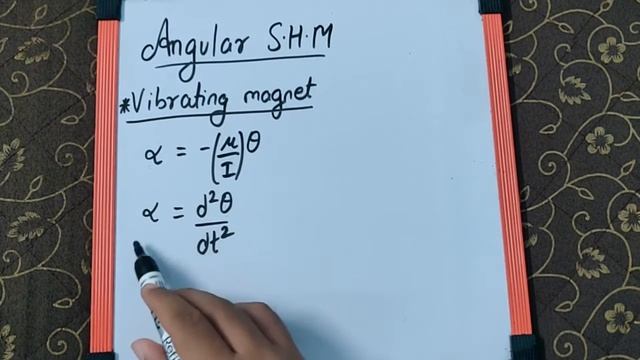 Angular S.H.M
*Vibrating magnet
α = -(μ/I)θ
α = d²θ/dt²